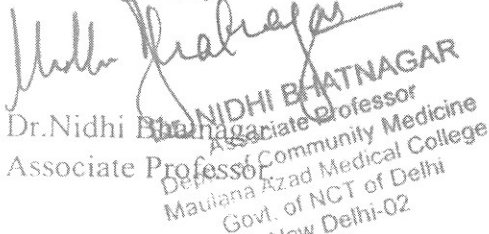 Nidhi Bhatnagar
Dr.Nidhi Bhatnagar
Associate Professor
Dr. NIDHI BHATNAGAR
Associate Professor
Deptt. of Community Medicine
Maulana Azad Medical College
Govt. of NCT of Delhi
New Delhi-02